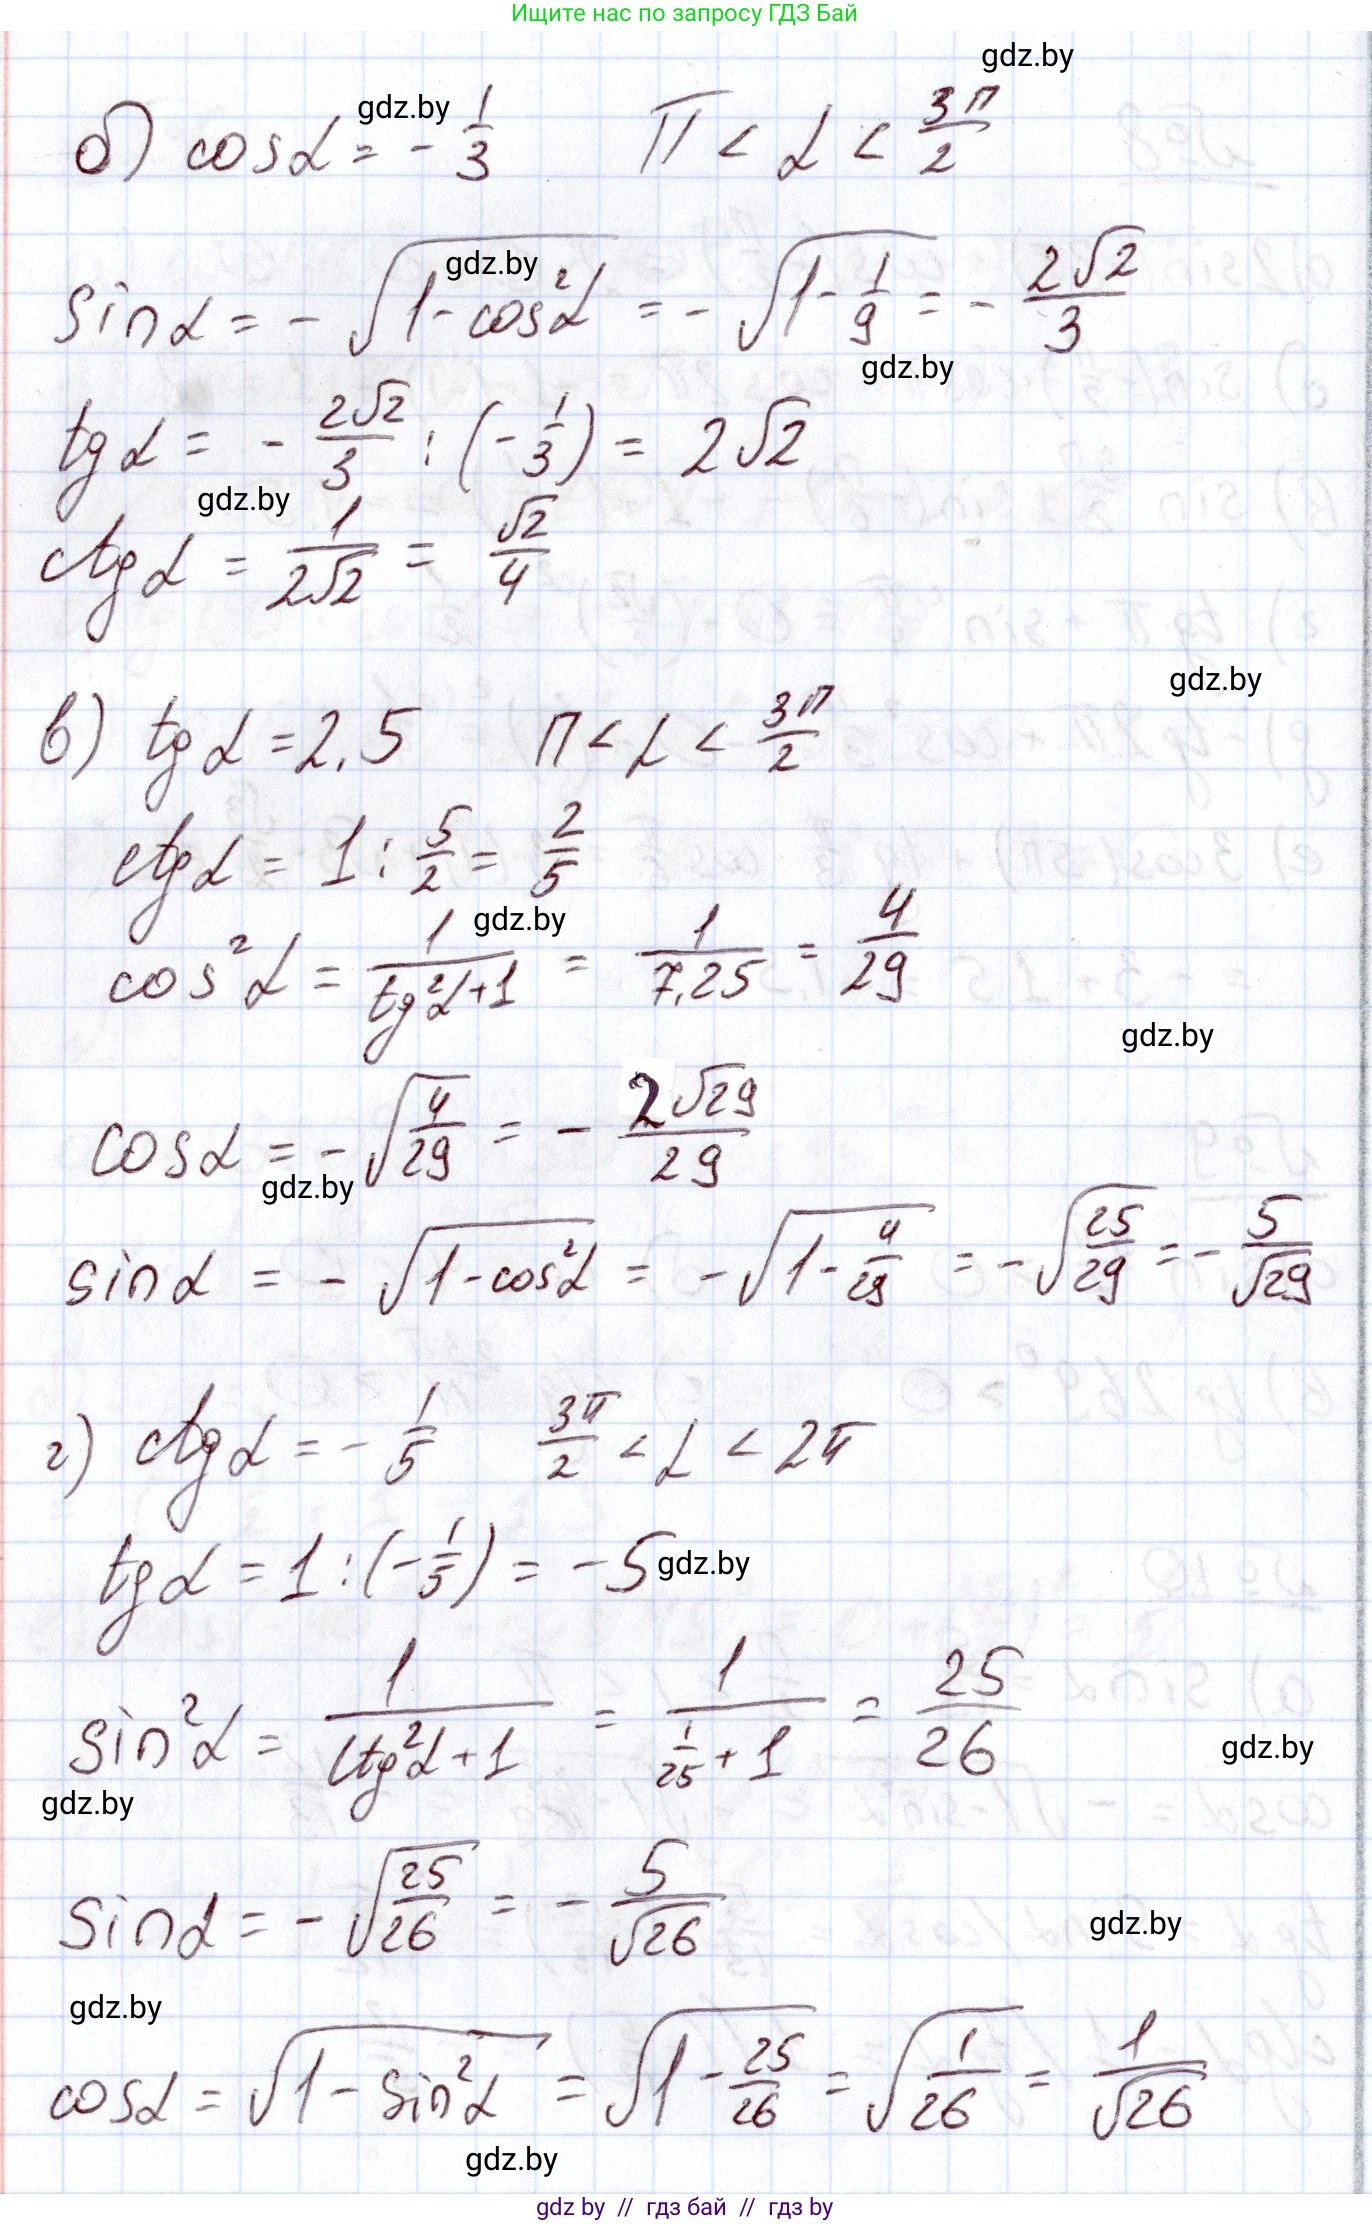 Ищите нас по запросу ГДЗ Бай
gdz.by
б) cosα = -1/3 π < α < 3π/2
gdz.by
sinα = -√(1-cos²α) = -√(1-1/9) = -2√2/3
gdz.by
gdz.by
tgα = -2√2/3 : (-1/3) = 2√2
gdz.by
ctgα = 1/(2√2) = √2/4
gdz.by
в) tgα = 2,5 π < α < 3π/2
ctgα = 1 : 5/2 = 2/5
gdz.by
cos²α = 1/(tg²α+1) = 1/7,25 = 4/29
gdz.by
cosα = -√(4/29) = -2√29/29
gdz.by
sinα = -√(1-cos²α) = -√(1-4/29) = -√(25/29) = -5/√29
г) ctgα = -1/5 3π/2 < α < 2π
tgα = 1 : (-1/5) = -5
gdz.by
sin²α = 1/(ctg²α+1) = 1/(1/25+1) = 25/26
gdz.by
gdz.by
sinα = -√(25/26) = -5/√26
gdz.by
gdz.by
cosα = √(1-sin²α) = √(1-25/26) = √(1/26) = 1/√26
gdz.by
gdz by // гдз бай // гдз by